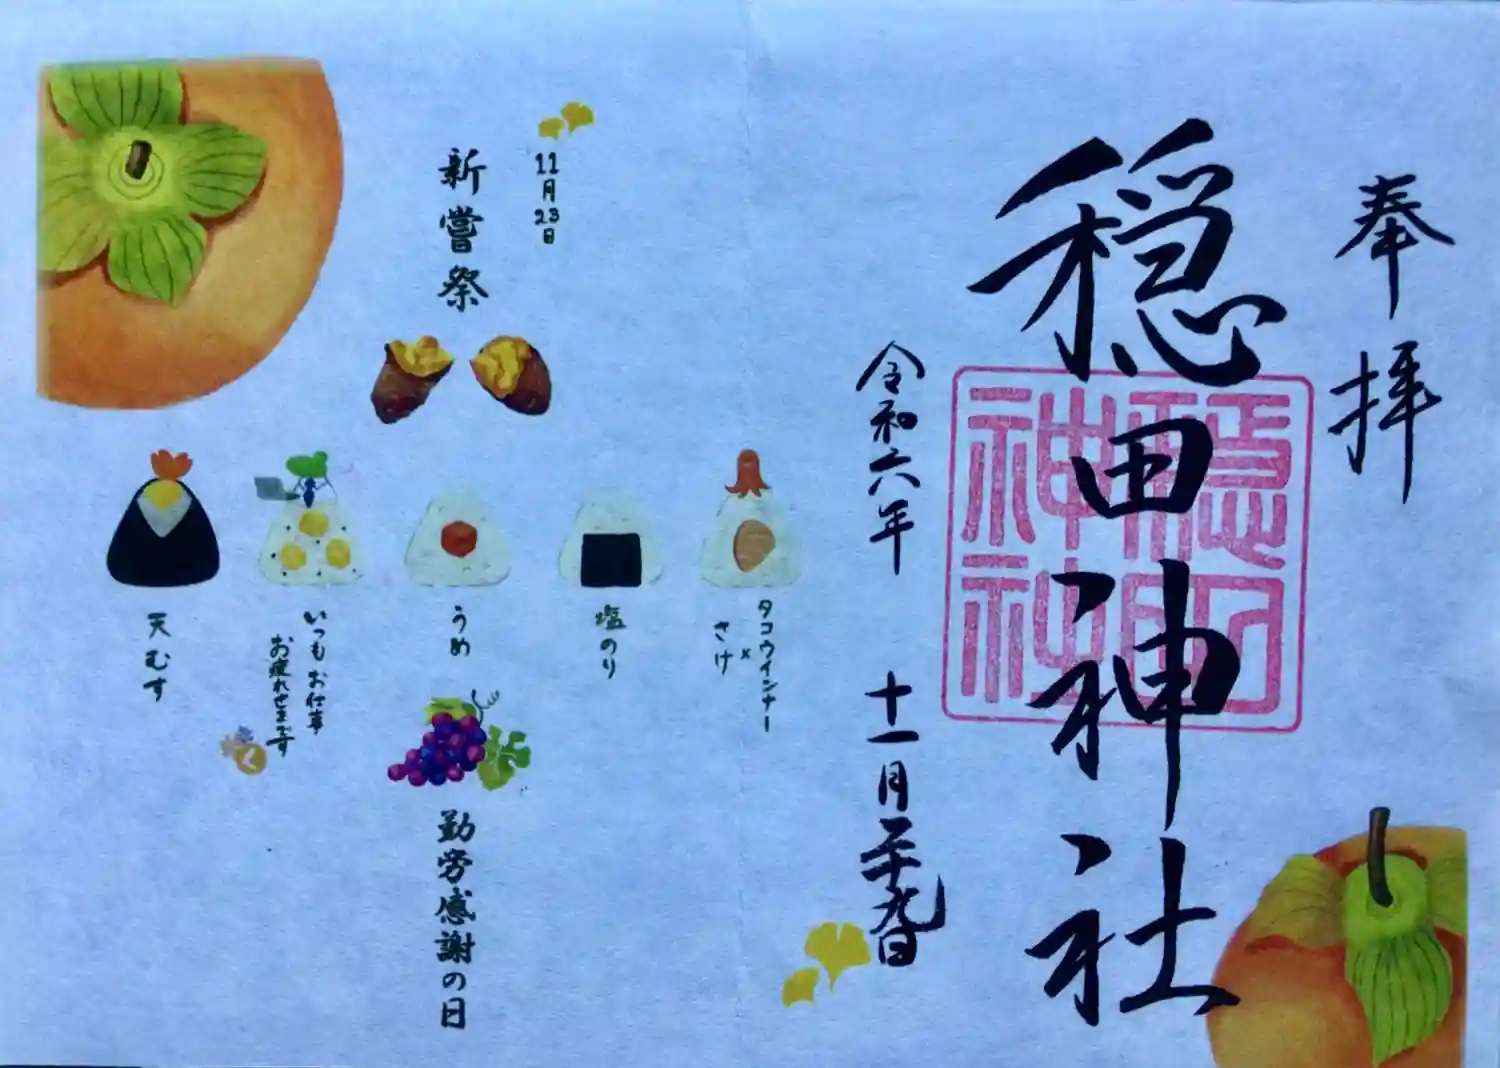 奉拝
穏田神社
穏田神社
令和六年 十一月二十九日
11月23日
新嘗祭
タコウインナー
×
さけ
塩のり
うめ
いつもお仕事
お疲れさまです
天むす
く
勤労感謝の日